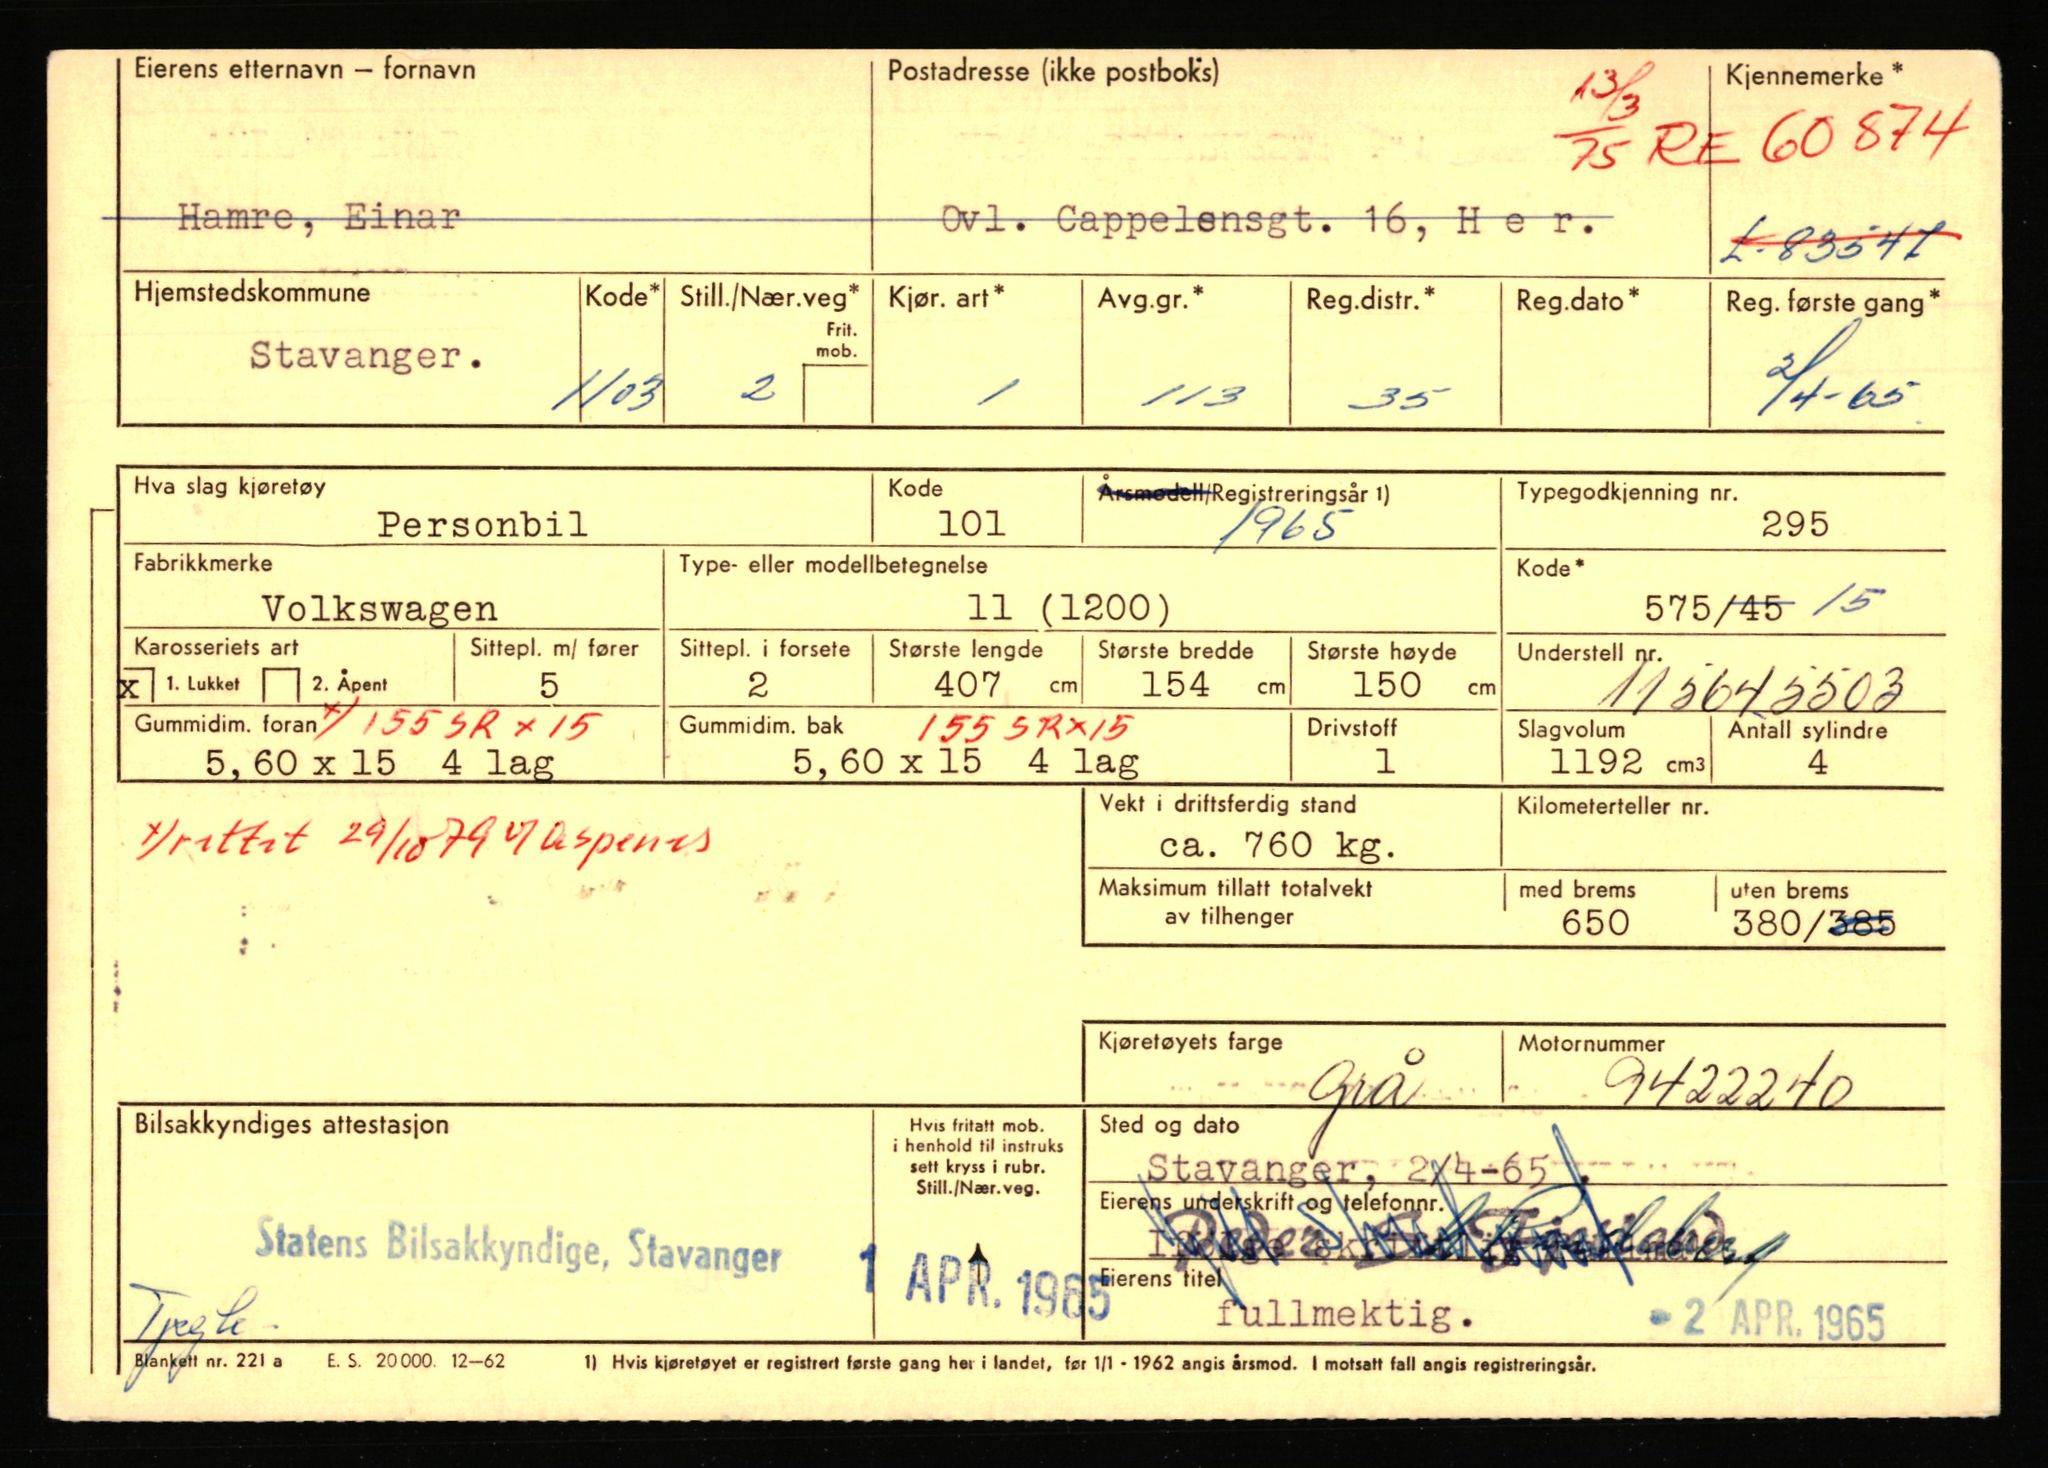 Eierens etternavn – fornavn
Postadresse (ikke postboks)
Kjennemerke*
13/3 75 RE 60874
Hamre, Einar
Ovl. Cappelensgt. 16, H e r.
L-83547
Hjemstedskommune
Kode*
Still./Nær.veg*
Kjør. art*
Avg.gr.*
Reg.distr.*
Reg.dato*
Reg. første gang*
Frit. mob.
Stavanger.
1103
2
1
113
35
2/4-65
Hva slag kjøretøy
Kode
Årsmodell/Registreringsår 1)
Typegodkjenning nr.
Personbil
101
1965
295
Fabrikkmerke
Type- eller modellbetegnelse
Kode*
Volkswagen
11 (1200)
575/45 15
Karosseriets art
Sittepl. m/ fører
Sittepl. i forsete
Største lengde
Største bredde
Største høyde
Understell nr.
x 1. Lukket 2. Åpent
5
2
407 cm
154 cm
150 cm
115645503
Gummidim. foran x) 155 SR x 15
Gummidim. bak 155 SR x 15
Drivstoff
Slagvolum
Antall sylindre
5,60 x 15 4 lag
5,60 x 15 4 lag
1
1192 cm3
4
Vekt i driftsferdig stand
Kilometerteller nr.
x) rettet 29/10 79
ca. 760 kg.
Maksimum tillatt totalvekt av tilhenger
med brems
uten brems
650
380/385
Kjøretøyets farge
Motornummer
Grå
9422240
Bilsakkyndiges attestasjon
Hvis fritatt mob.
i henhold til instruks
sett kryss i rubr.
Still./Nær.veg.
Sted og dato
Stavanger, 2/4-65.
Eierens underskrift og telefonnr.
Statens Bilsakkyndige, Stavanger
1 APR. 1965
Eierens titel
fullmektig.
- 2 APR. 1965
Blankett nr. 221 a E. S. 20 000. 12–62
1) Hvis kjøretøyet er registrert første gang her i landet, før 1/1 - 1962 angis årsmod. I motsatt fall angis registreringsår.